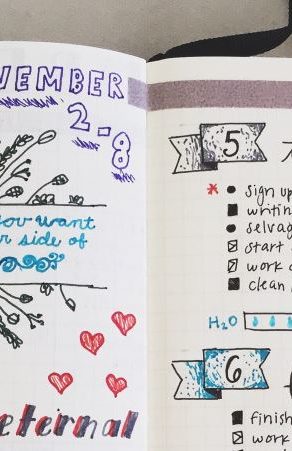 VEMBER
2-8
you want
side of
eternal
5
* sign up
writing
selvag
start
work
clean
H2O
6
finish
work